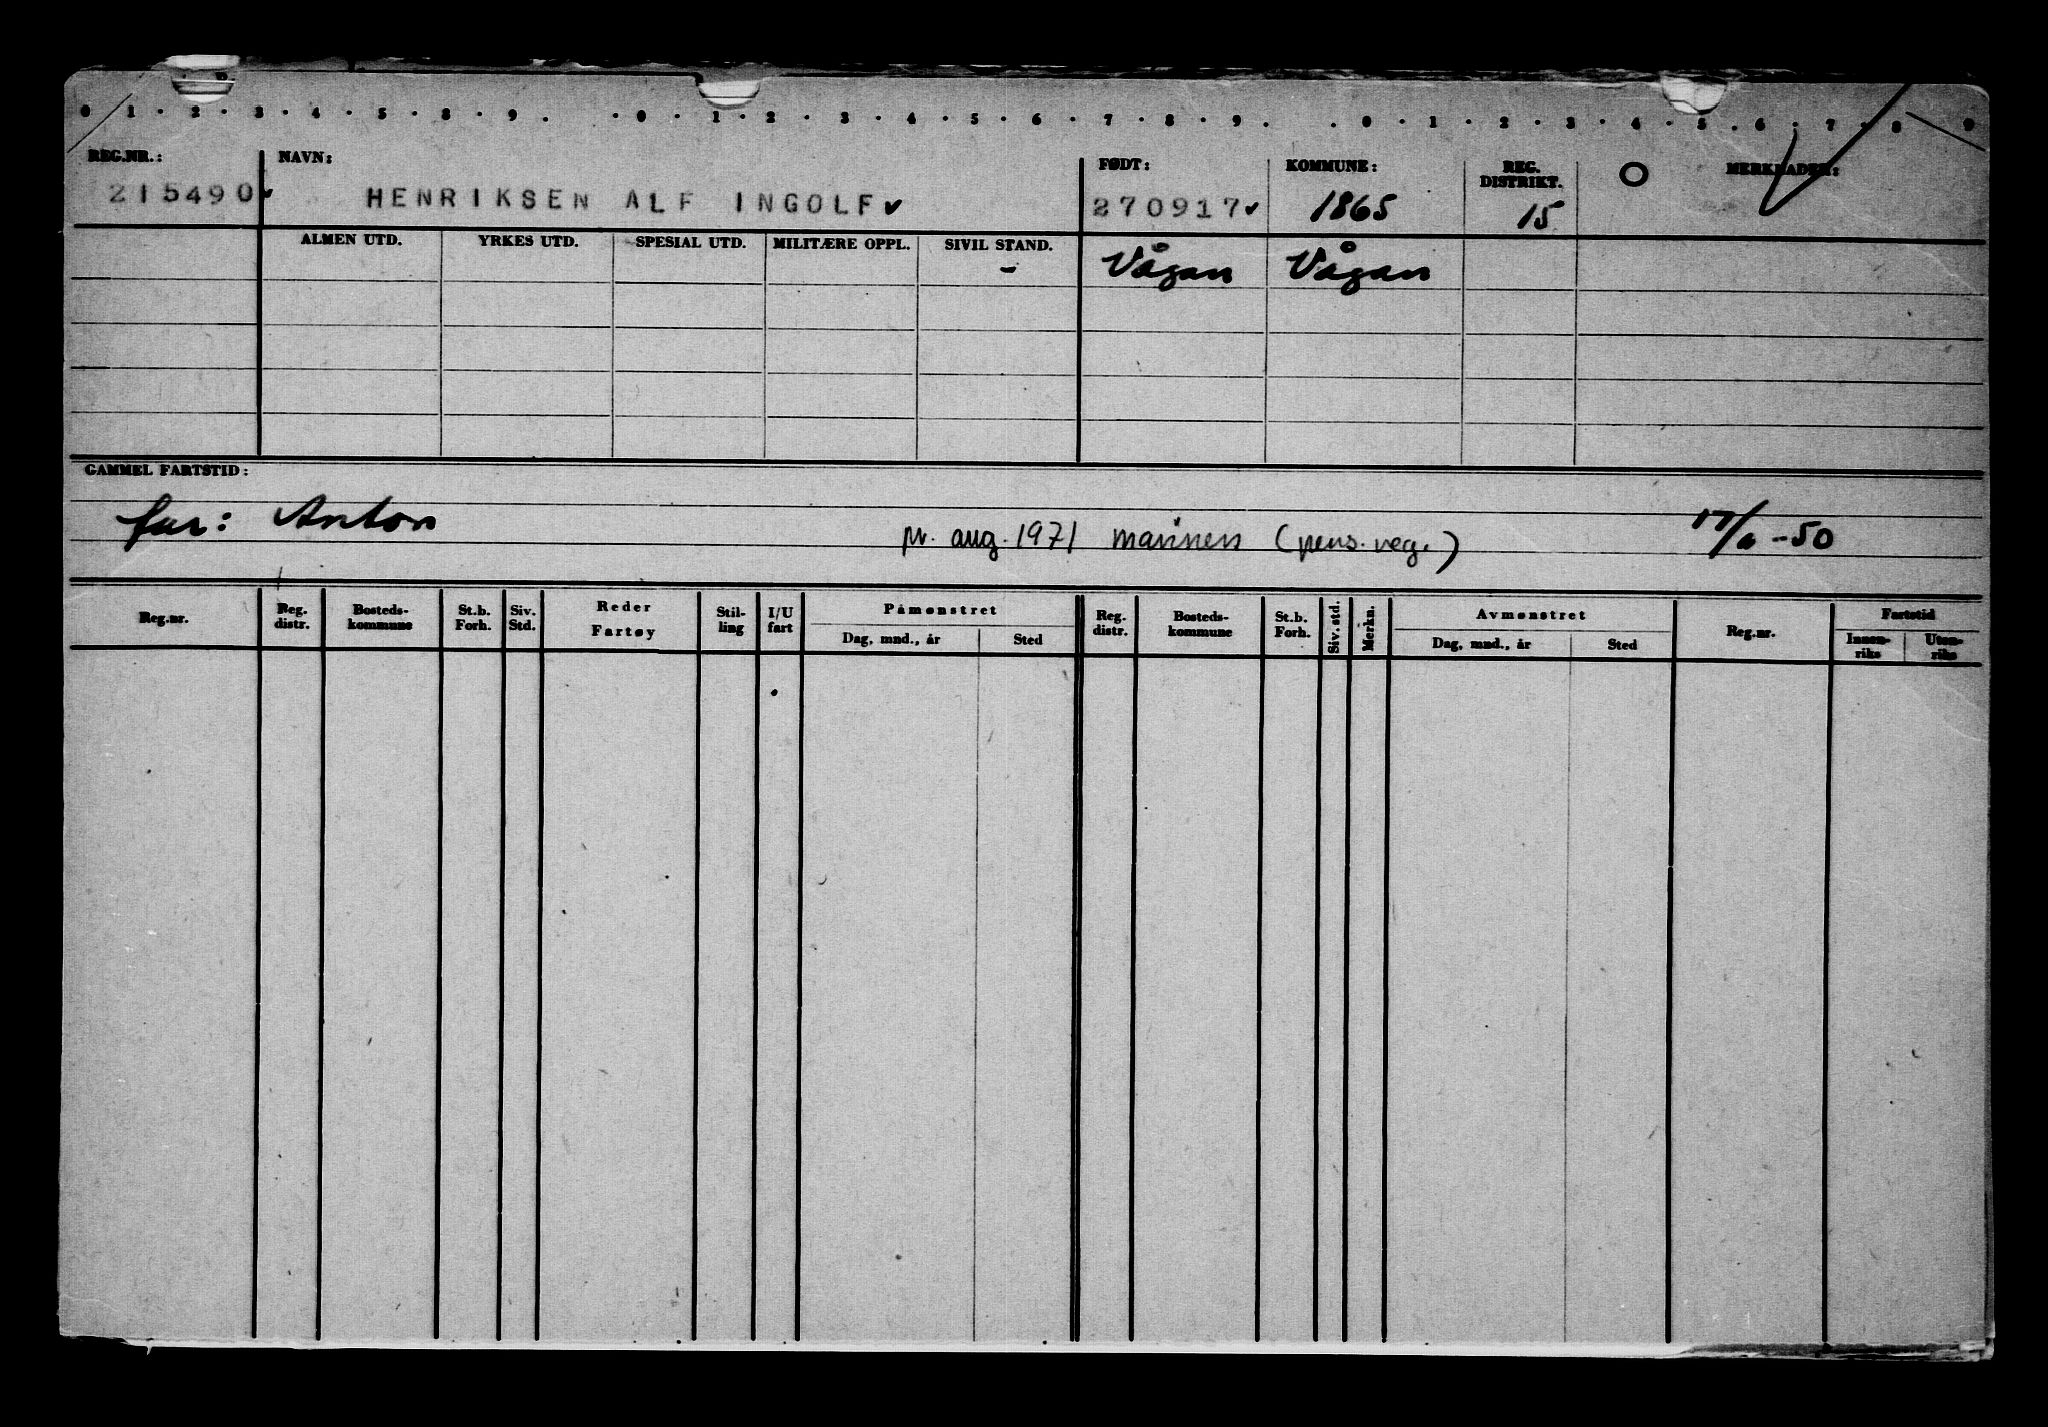 0 1 · 2 · 3 · 4 · 5 · 8 · 9 . · 0 · 1 · 2 · 3 · 4 · 5 · 6 · 7 · 8 · 9 . . 0 · 1 · 2 · 3 · 4 · 5 . 6 . 7 · 8 9
REG.NR.: NAVN: FØDT: KOMMUNE: REG. DISTRIKT. O MERKNADER:
215490 ✓ HENRIKSEN ALF INGOLF ✓ 270917 ✓ 1865 15
ALMEN UTD. YRKES UTD. SPESIAL UTD. MILITÆRE OPPL. SIVIL STAND.
- Vågan Vågan
GAMMEL FARTSTID:
far: Anton pr. aug. 1971 marinen (pens. reg.) 17/6 -50
Reg.nr. Reg. distr. Bosteds-kommune St.b. Forh. Siv. Std. Reder Fartøy Stil-ling I/U fart Påmønstret Reg. distr. Bosteds-kommune St.b. Forh. Siv. std. Merkn. Avmønstret Reg.nr. Fartstid
Dag, mnd., år Sted Dag, mnd., år Sted Innen-riks Uten-riks